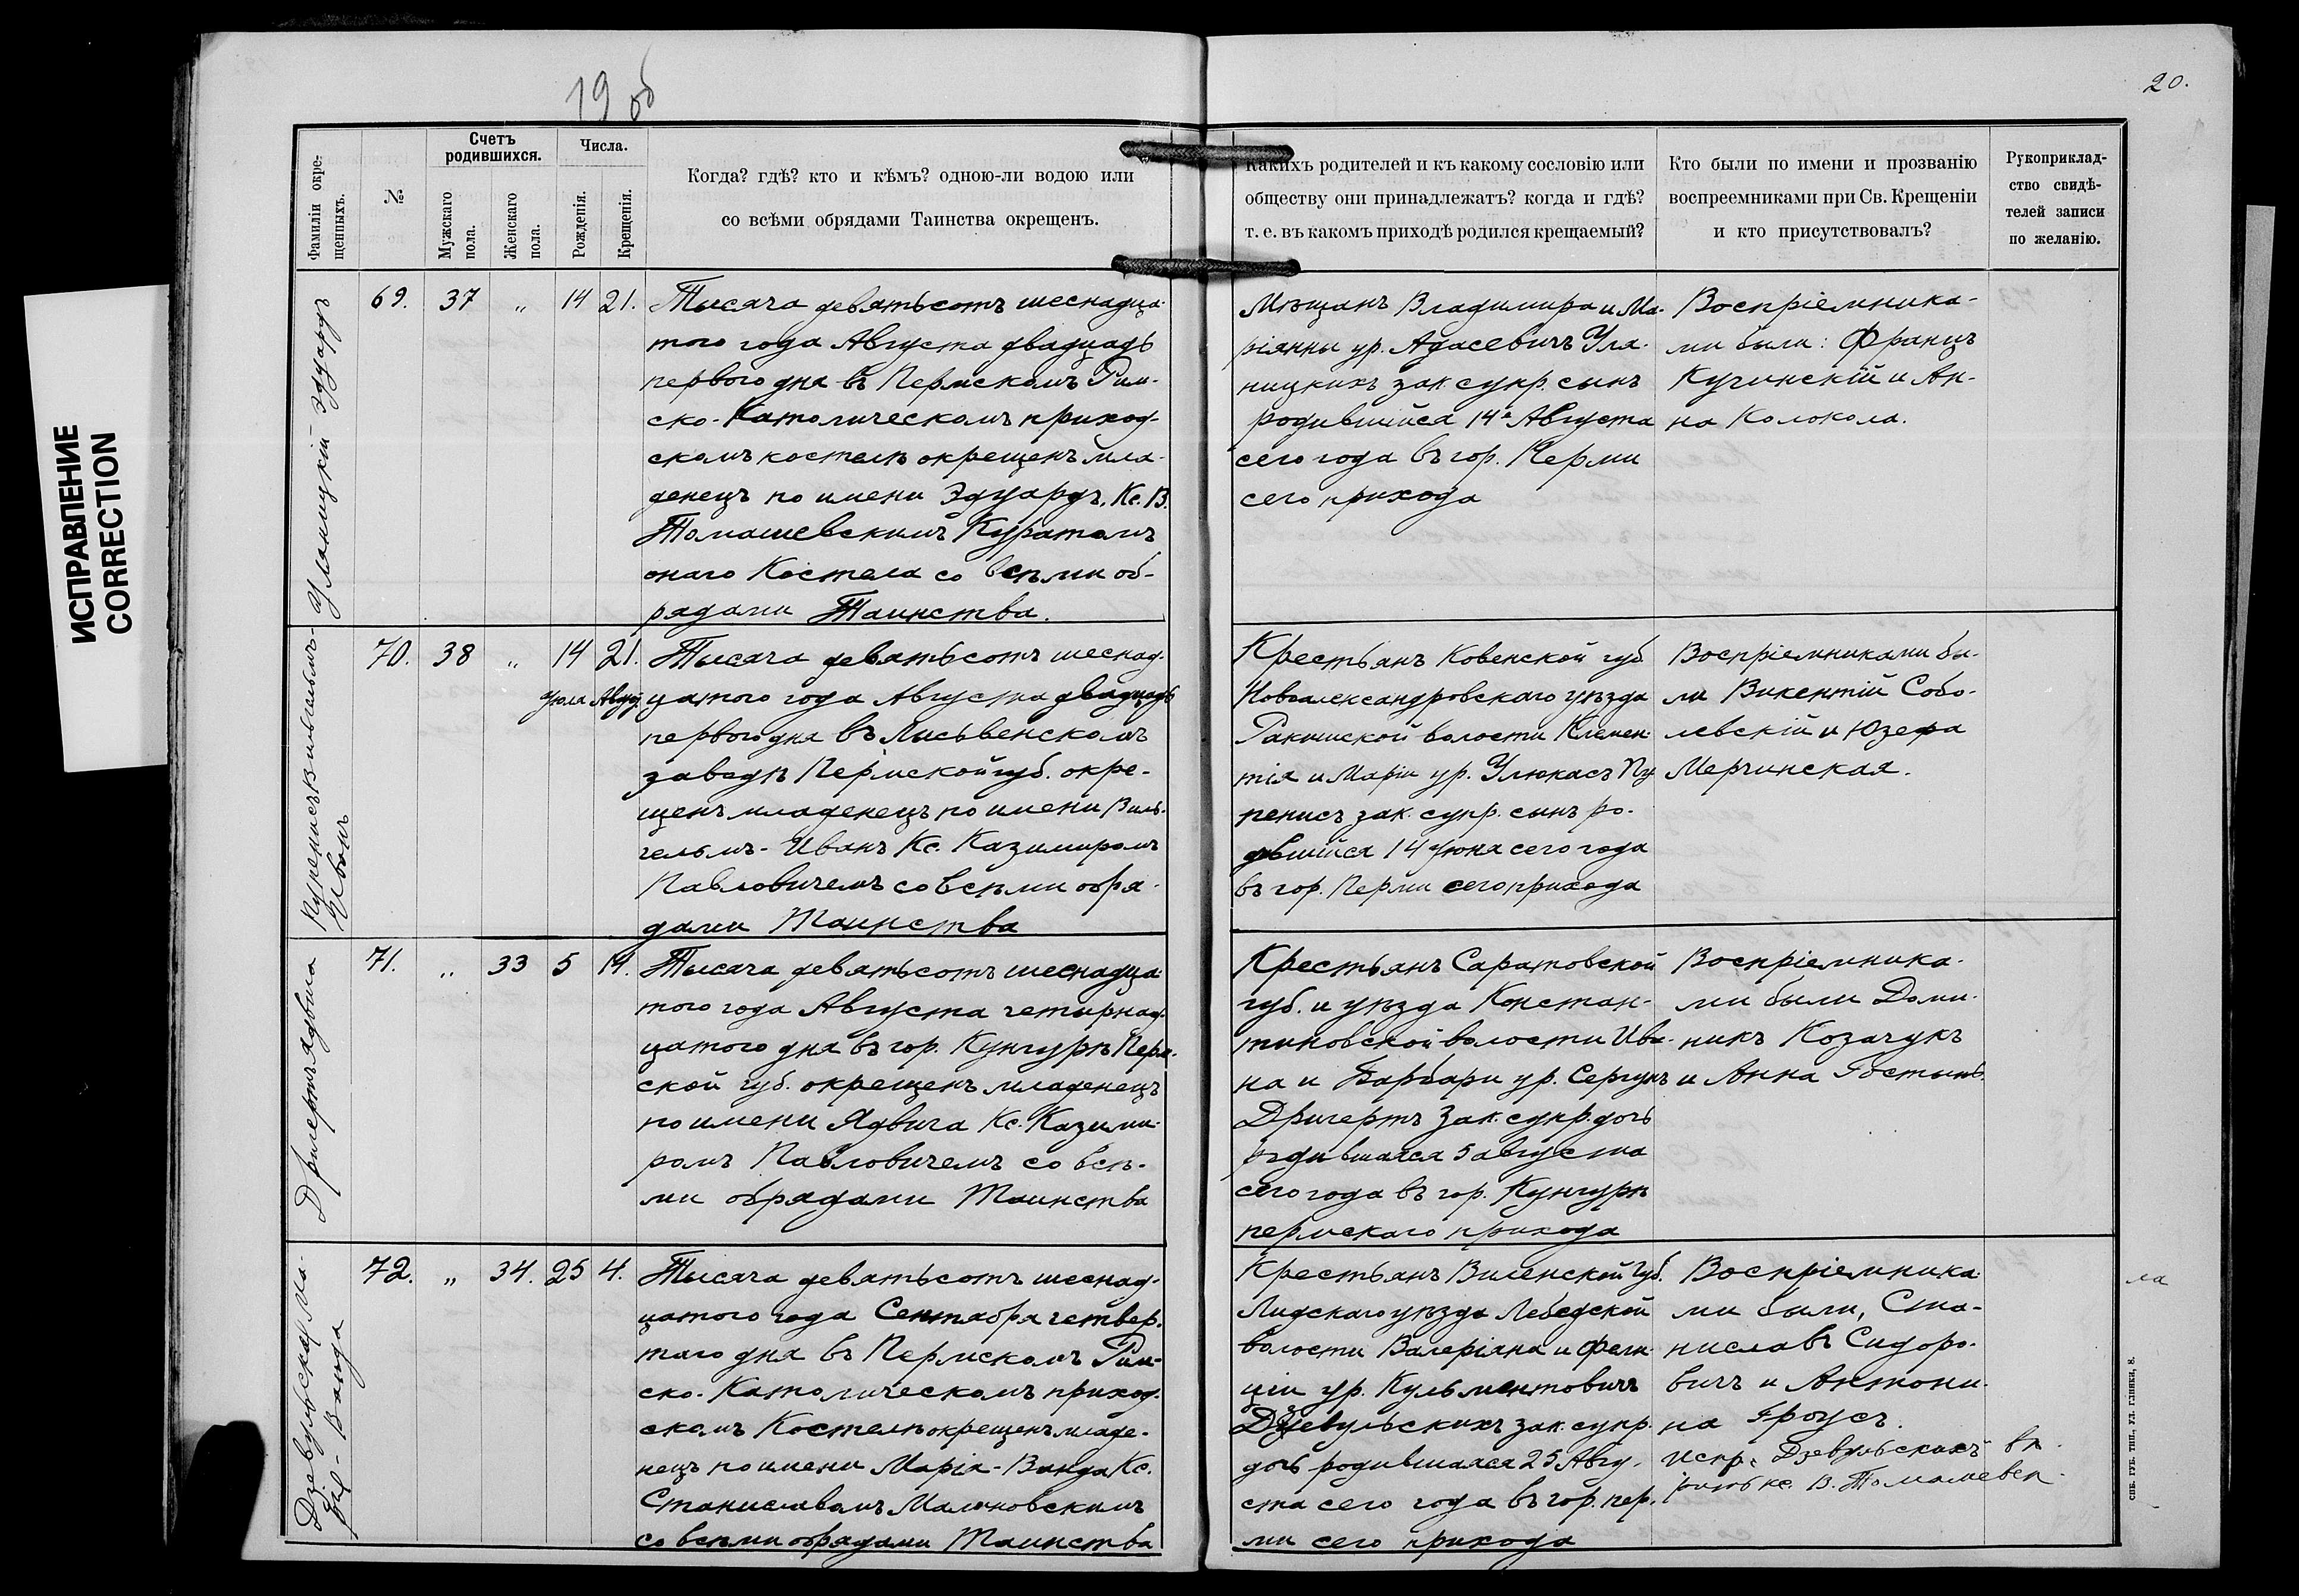 19 об
20.
ИСПРАВЛЕНИЕ
CORRECTION
Фамиліи окре-
щенныхъ.
№
Счетъ
родившихся.
Мужскаго
пола.
Женскаго
пола.
Числа.
Рожденія.
Крещенія.
Когда? гдѣ? кто и кѣмъ? одною-ли водою или
со всѣми обрядами Таинства окрещенъ.
Какихъ родителей и къ какому сословію или
обществу они принадлежатъ? когда и гдѣ?
т. е. въ какомъ приходѣ родился крещаемый?
Кто были по имени и прозванію
воспреемниками при Св. Крещеніи
и кто присутствовалъ?
Рукоприклад-
ство свидѣ-
телей записи
по желанію.
Уланицкій Эдуардъ
69. 37 „ 14 21.
Тысяча девятьсотъ шеснадца-
того года Августа двадцадь
первого дня въ Пермскомъ Рим-
ско-Католическомъ приход-
скомъ костелѣ окрещенъ мла-
денецъ по имени Эдуардъ, Кс. В.
Томашевскимъ Куратомъ
онаго Костела со всѣми об-
рядами Таинства.
Мѣщанъ Владимира и Ма-
ріянны ур. Адасевичъ Ула-
ницкихъ зак. супр. сынъ
родившійся 14 Августа
сего года въ гор. Перми
сего прихода
Воспріемника-
ми были: Францъ
Кучинскій и Ан-
на Колокола.
Пупенисъ Вильгельмъ-
Иванъ
70. 38 „ 14 21.
Іюля Авгус.
Тысяча девятьсотъ шеснад-
цатого года Августа двадцадь
первого дня въ Лысьвенскомъ
заводѣ Пермской губ. окре-
щенъ младенецъ по имени Виль-
гельмъ-Иванъ Кс. Казимиромъ
Павловичемъ со всѣми обря-
дами Таинства
Крестьянъ Ковенской губ
Новоалександровскаго уѣзда
Ракишской волости Клемен-
тія и Маріи ур. Улюкасъ Пу
пенисъ зак. супр. сынъ ро-
дившійся 14 сего года
въ гор. Перми сего прихода
Воспріемниками бы-
ли Викентій Собо-
левскій и Юзефа
Мерчинская.
Дригертъ Ядвига
71. „ 33 5 14.
Тысяча девятьсотъ шеснадца
того года Августа четырнад-
цатого дня въ гор. Кунгурѣ Перм-
ской губ. окрещенъ младенецъ
по имени Ядвига Кс. Казими-
ромъ Павловичемъ со всѣ-
ми обрядами Таинства
Крестьянъ Саратовской
губ. и уѣзда Констан-
тиновской волости Ива-
на и Барбари ур.
Дригертъ зак. супр. дочь
родившаяся 5 августа
сего года въ гор. Кунгурѣ
пермскаго прихода
Воспріемника-
ми были Доми-
никъ Козачукъ
и Анна
Дзевульская Ма-
рія - Ванда
72. „ 34. 25 4.
Тысяча девятьсотъ шеснад-
цатого года Сентября четвер-
таго дня въ Пермскомъ Рим-
ско-Католическомъ приход-
скомъ Костелѣ окрещенъ младе-
нецъ по имени Марія-Ванда Кс.
Станиславомъ Малиновскимъ
со всѣми обрядами Таинства
Крестьянъ Виленской Губ.
Лидскаго уѣзда Лебедской
волости Валеріяна и Фели-
ціи ур. Кульментовичъ
Дзевульскихъ зак. супр.
дочь родившаяся 25 Авгу-
ста сего года въ гор. пер-
ми сего прихода
Воспріемника
ми были, Ста-
ниславъ Сидоро-
вичъ и Антони-
на Гроусъ.
Испр. Дзевульскихъ
кс. В. Томашевск
СПБ. ГУБ. ТИП., УЛ. ГЛИНКИ, 8.